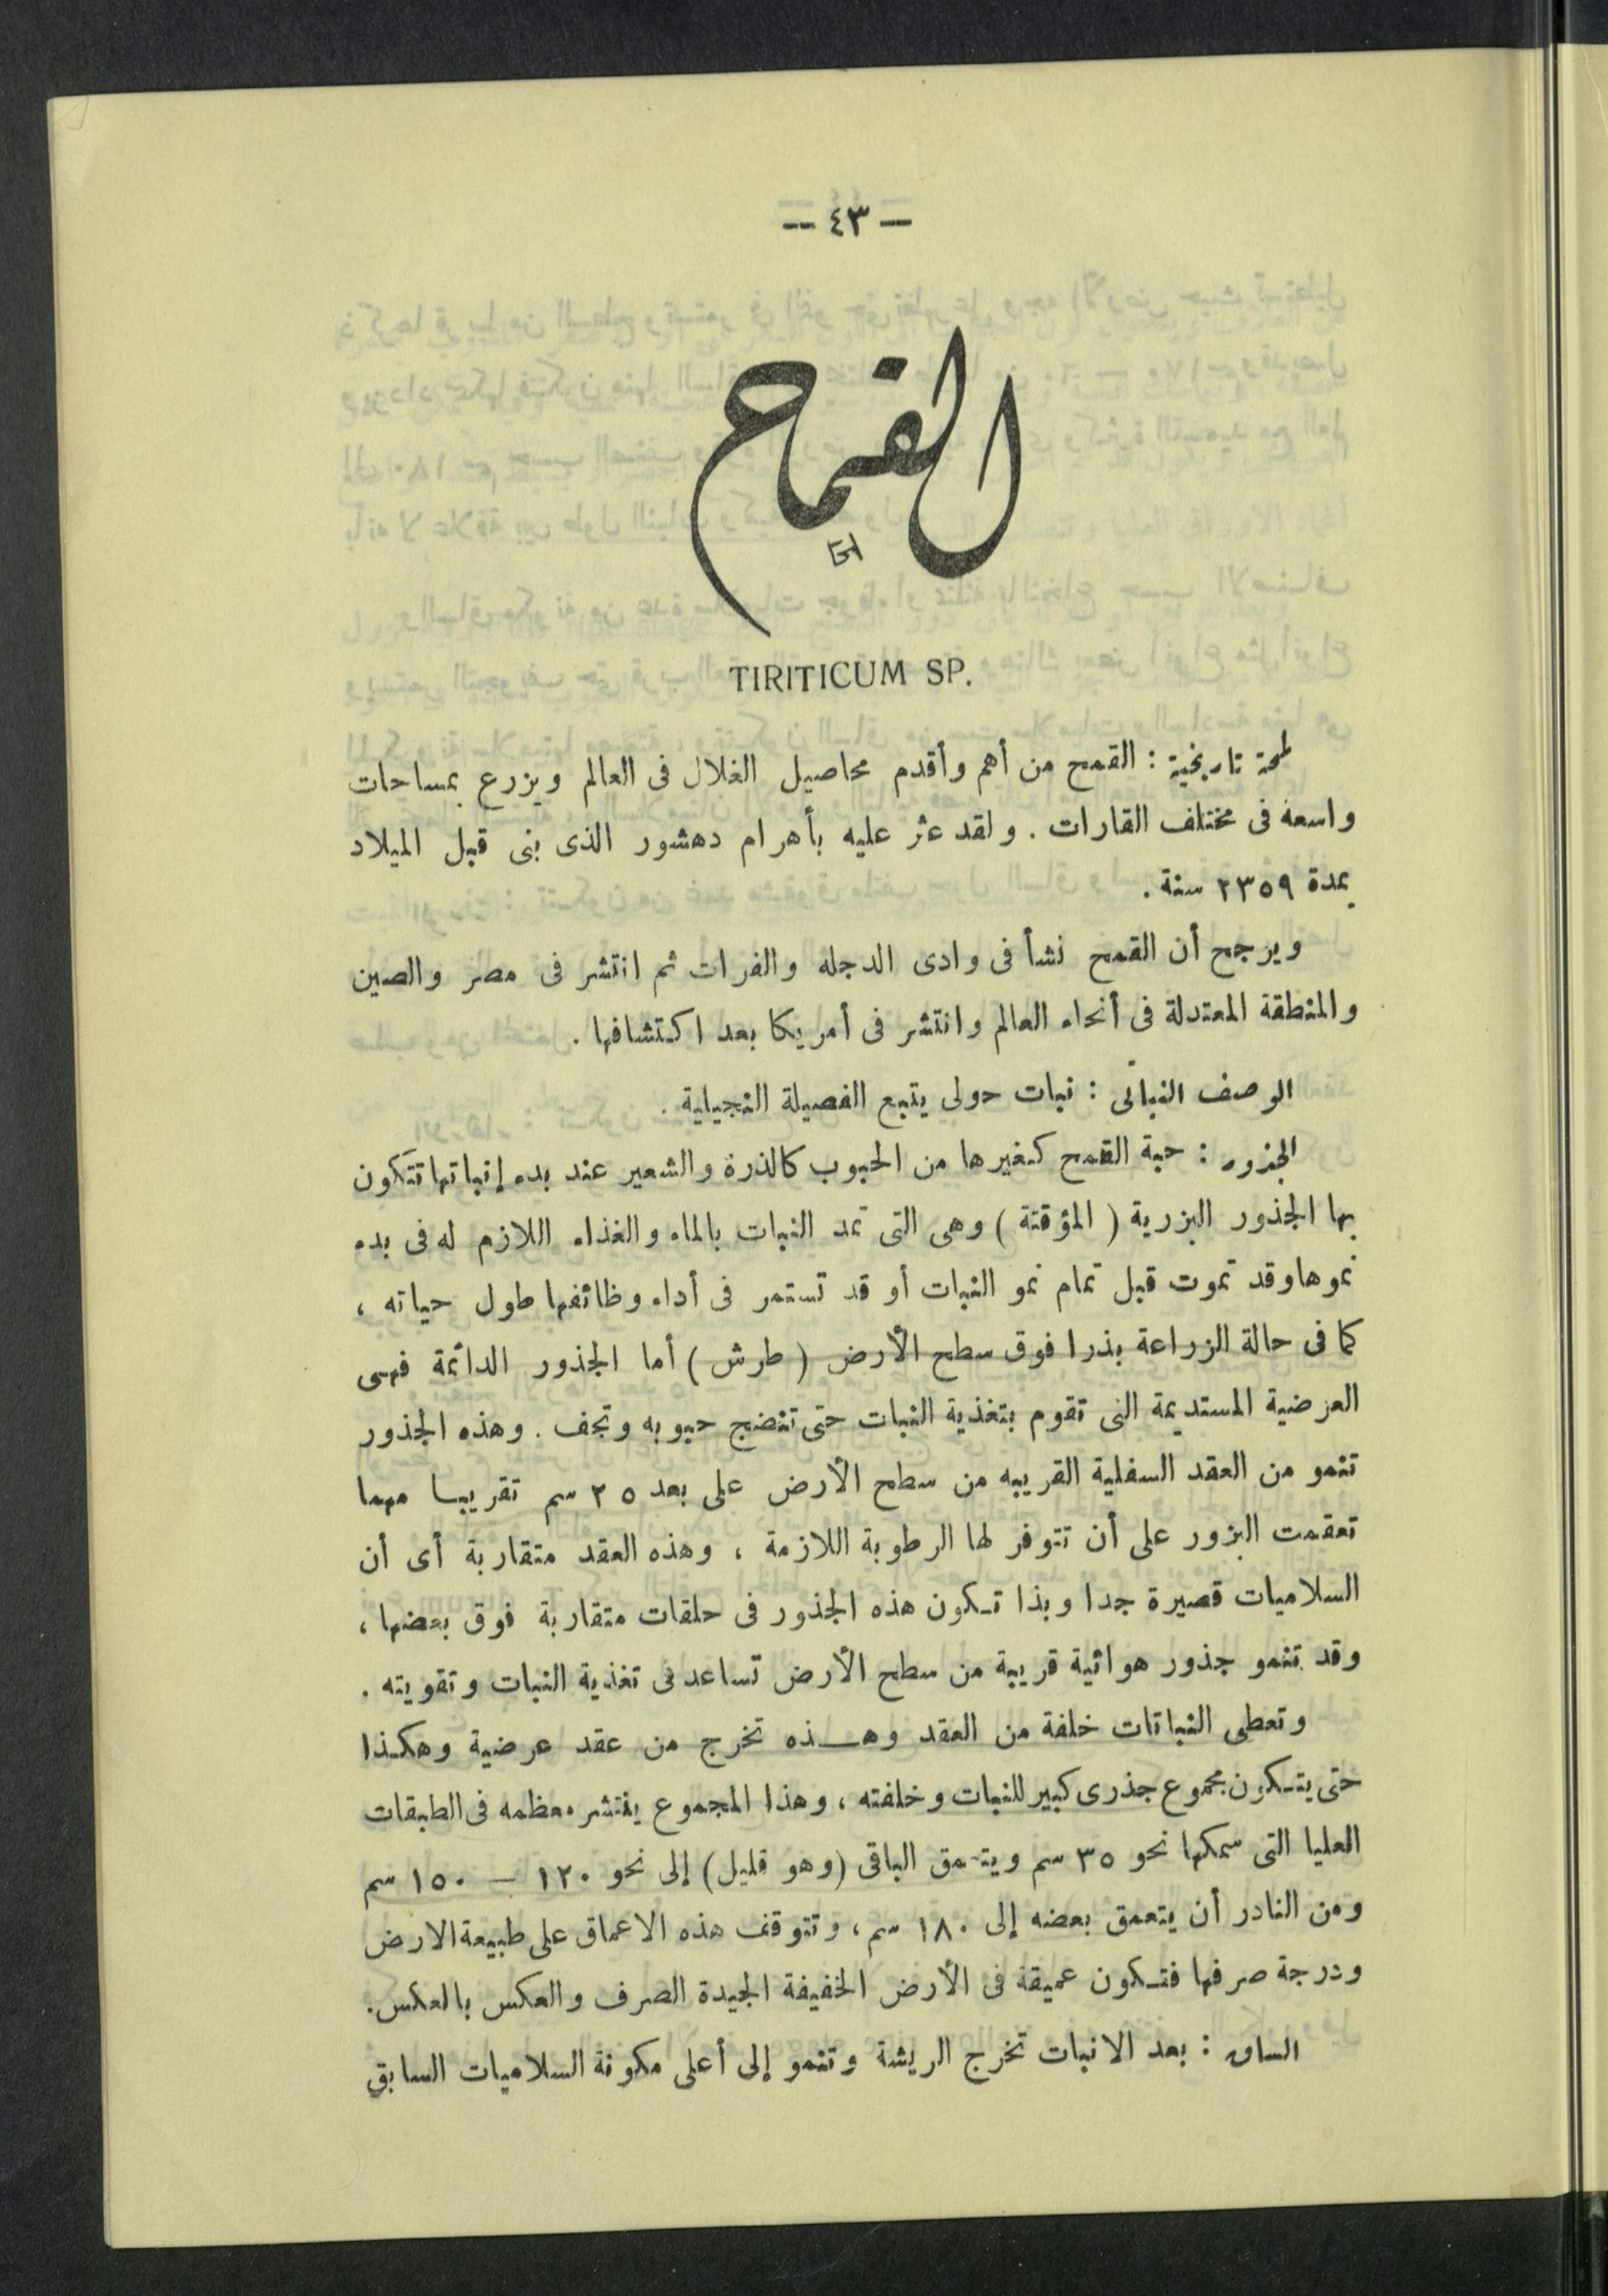 — ٤٣ —
القمح
TIRITICUM SP.
لمحة تاريخية : القمح من أهم وأقدم محاصيل الغلال فى العالم ويزرع بمساحات
واسعة فى مختلف القارات . ولقد عثر عليه بأهرام دهشور الذى بنى قبل الميلاد
بمدة ٢٣٥٩ سنة .
ويرجح أن القمح نشأ فى وادى الدجله والفرات ثم انتشر فى مصر والصين
والمنطقة المعتدلة فى أنحاء العالم وانتشر فى أمريكا بعد اكتشافها .
الوصف النباتى : نبات حولى يتبع الفصيلة النجيلية .
الجذور : حبة القمح كغيرها من الحبوب كالذرة والشعير عند بدء إنباتها تتكون
بها الجذور البزرية ( المؤقتة ) وهى التى تمد النبات بالماء والغذاء اللازم له فى بدء
نموها وقد تموت قبل تمام نمو النبات أو قد تستمر فى أداء وظائفها طول حياته ،
كما فى حالة الزراعة بذرا فوق سطح الأرض ( طرش ) أما الجذور الدائمة فهى
العرضية المستديمة التى تقوم بتغذية النبات حتى تنضج حبوبه وتجف . وهذه الجذور
تنمو من العقد السفلية القريبه من سطح الأرض على بعد ٢٥ سم تقريبا مهما
تعقمت البزور على أن تتوفر لها الرطوبة اللازمة ، وهذه العقد متقاربة أى أن
السلاميات قصيرة جدا وبذا تكون هذه الجذور فى حلقات متقاربة فوق بعضها ،
وقد تنمو جذور هوائية قريبة من سطح الأرض تساعد فى تغذية النبات وتقويته .
وتعطى النباتات خلفة من العقد وهذه تخرج من عقد عرضية وهكذا
حتى يتكون مجموع جذرى كبير للنبات وخلفته ، وهذا المجموع ينتشر معظمه فى الطبقات
العليا التى سمكها نحو ٣٥ سم ويتعمق الباقى (وهو قليل) إلى نحو ١٢٠ — ١٥٠ سم
ومن النادر أن يتعمق بعضه إلى ١٨٠ سم ، وتتوقف هذه الاعماق على طبيعة الارض
ودرجة صرفها فتكون عميقة فى الأرض الخفيفة الجيدة الصرف والعكس بالعكس .
الساق : بعد الانبات تخرج الريشة وتنمو إلى أعلى مكونة السلاميات السابق